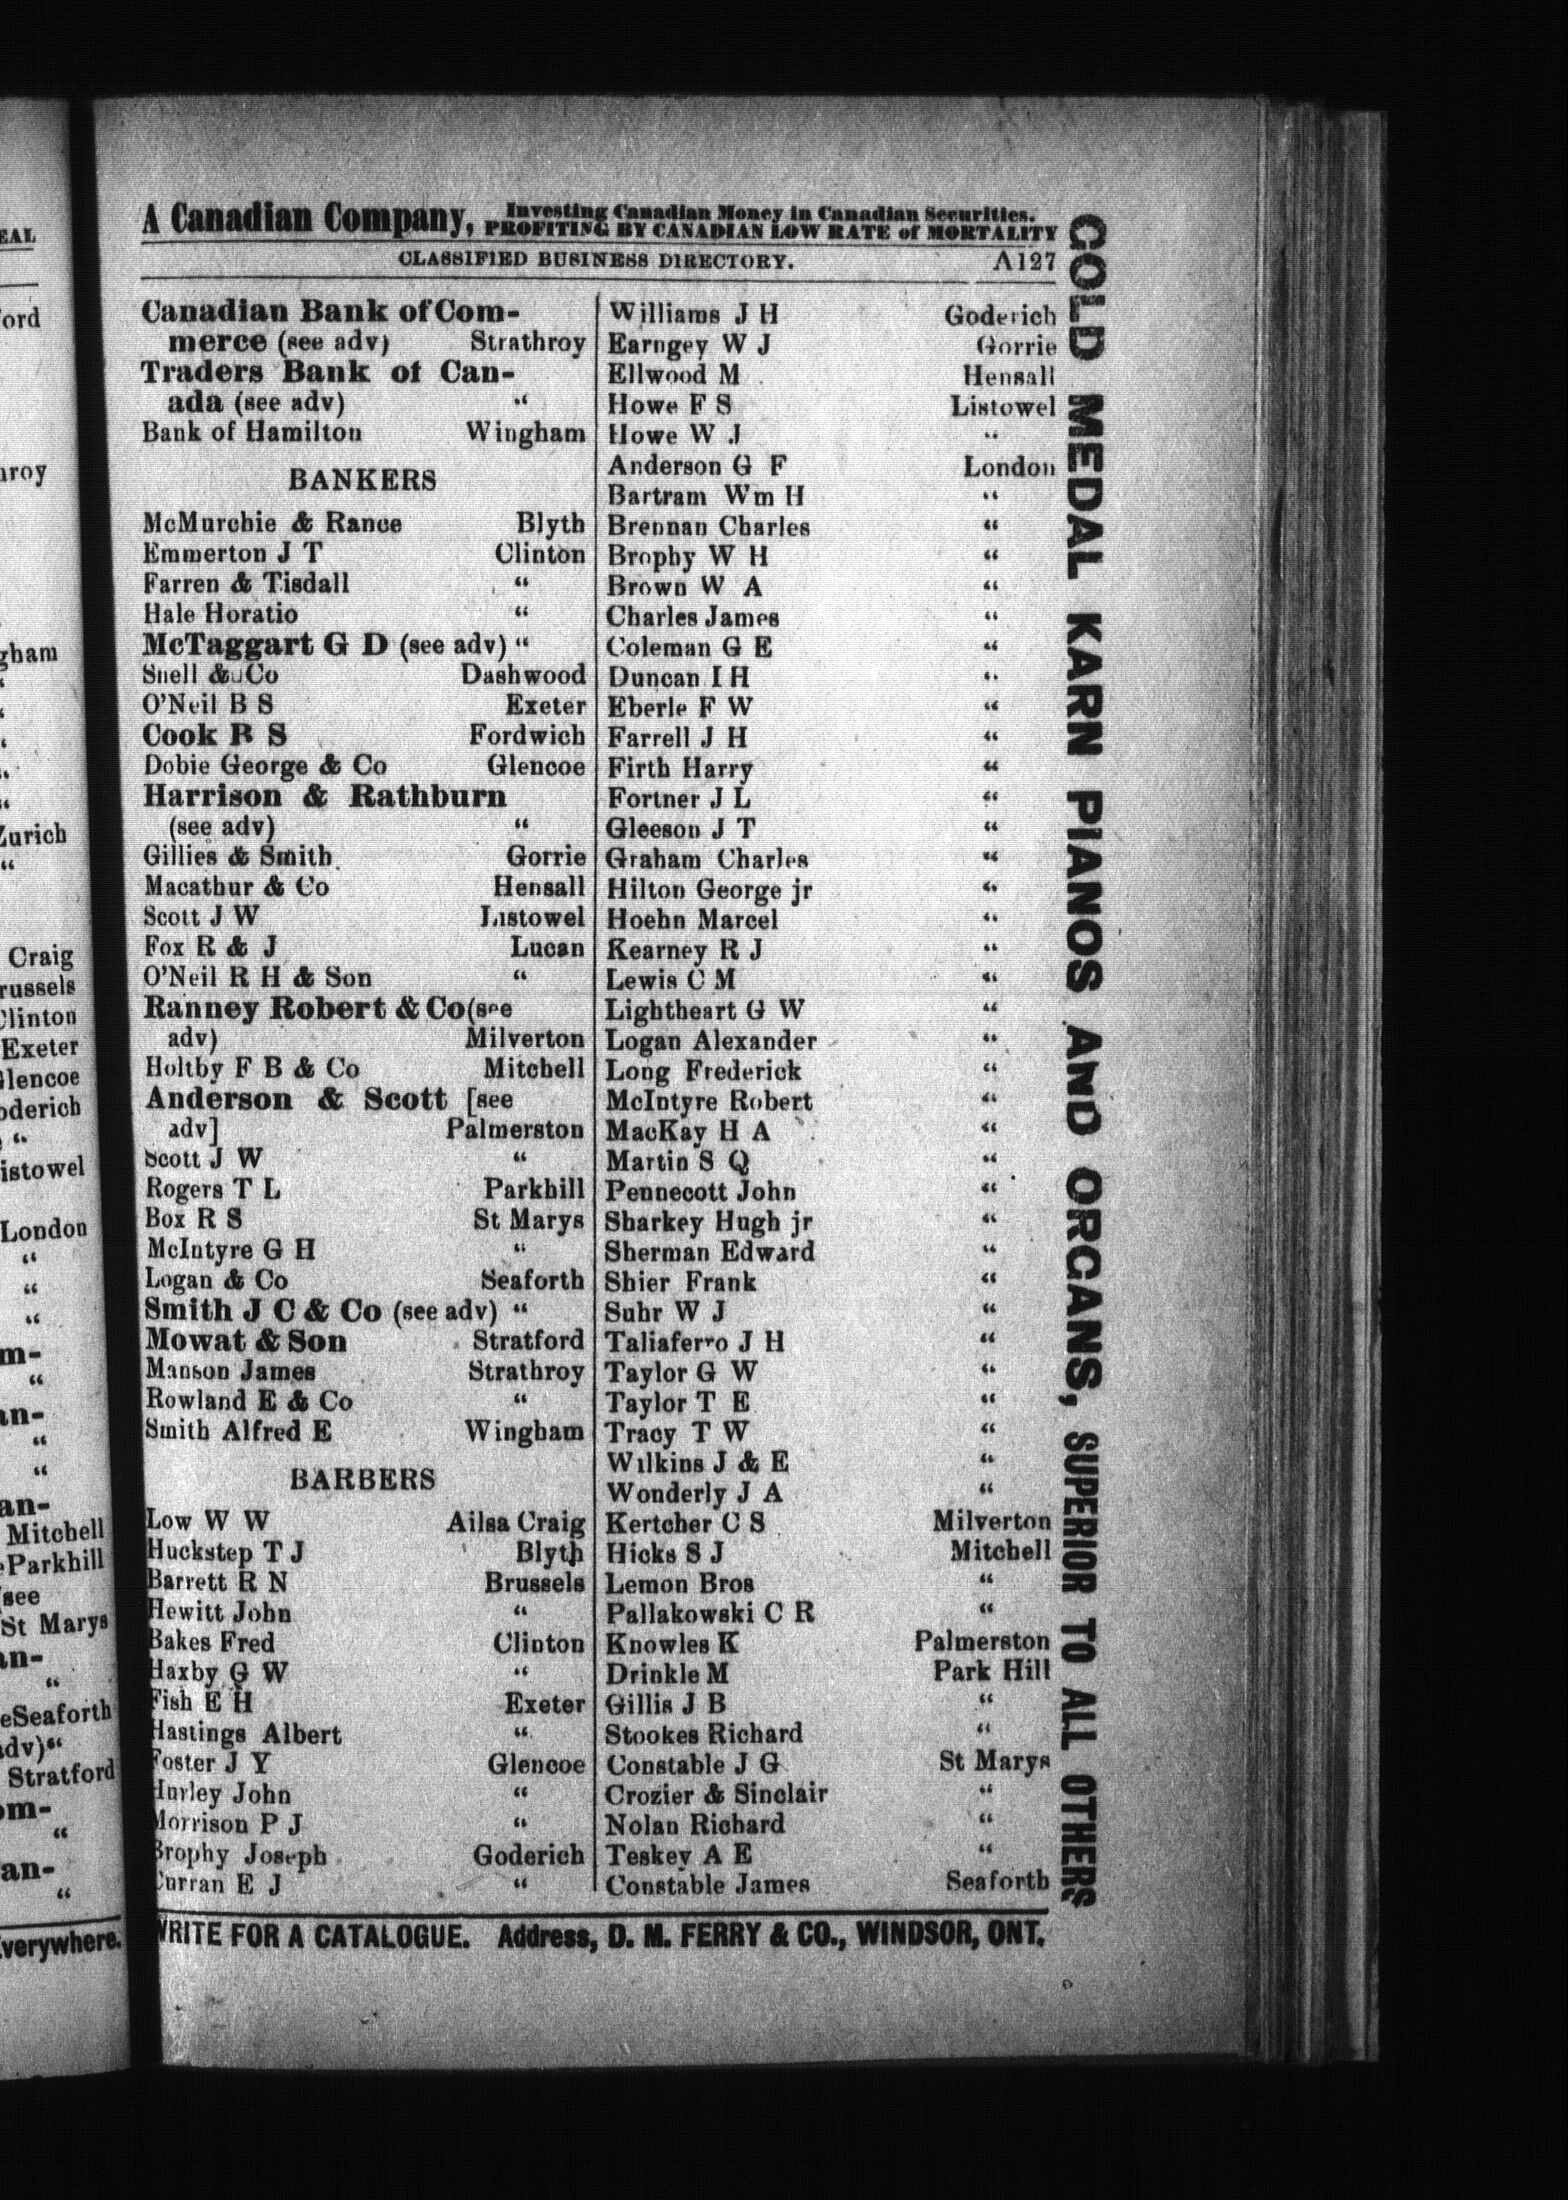 A Canadian Company, Investing Canadian Money in Canadian Securities.
PROFITING BY CANADIAN LOW RATE of MORTALITY
CLASSIFIED BUSINESS DIRECTORY. A127
Canadian Bank of Com-
merce (see adv) Strathroy
Traders Bank of Can-
ada (see adv) “
Bank of Hamilton Wingham
BANKERS
McMurchie & Rance Blyth
Emmerton J T Clinton
Farren & Tisdall “
Hale Horatio “
McTaggart G D (see adv) “
Snell & Co Dashwood
O'Neil B S Exeter
Cook B S Fordwich
Dobie George & Co Glencoe
Harrison & Rathburn
(see adv) “
Gillies & Smith Gorrie
Macathur & Co Hensall
Scott J W Listowel
Fox R & J Lucan
O'Neil R H & Son “
Ranney Robert & Co (see
adv) Milverton
Holtby F B & Co Mitchell
Anderson & Scott [see
adv] Palmerston
Scott J W “
Rogers T L Parkhill
Box R S St Marys
McIntyre G H “
Logan & Co Seaforth
Smith J C & Co (see adv) “
Mowat & Son Stratford
Manson James Strathroy
Rowland E & Co “
Smith Alfred E Wingham
BARBERS
Low W W Ailsa Craig
Huckstep T J Blyth
Barrett R N Brussels
Hewitt John “
Bakes Fred Clinton
Haxby G W “
Fish E H Exeter
Hastings Albert “
Foster J Y Glencoe
Hurley John “
Morrison P J “
Brophy Joseph Goderich
Curran E J “
Williams J H Goderich
Earngey W J Gorrie
Ellwood M Hensall
Howe F S Listowel
Howe W J “
Anderson G F London
Bartram Wm H “
Brennan Charles “
Brophy W H “
Brown W A “
Charles James “
Coleman G E “
Duncan I H “
Eberle F W “
Farrell J H “
Firth Harry “
Fortner J L “
Gleeson J T “
Graham Charles “
Hilton George jr “
Hoehn Marcel “
Kearney R J “
Lewis C M “
Lightheart G W “
Logan Alexander “
Long Frederick “
McIntyre Robert “
MacKay H A “
Martin S Q “
Pennecott John “
Sharkey Hugh jr “
Sherman Edward “
Shier Frank “
Suhr W J “
Taliaferro J H “
Taylor G W “
Taylor T E “
Tracy T W “
Wilkins J & E “
Wonderly J A “
Kertcher C S Milverton
Hicks S J Mitchell
Lemon Bros “
Pallakowski C R “
Knowles K Palmerston
Drinkle M Park Hill
Gillis J B “
Stookes Richard “
Constable J G St Marys
Crozier & Sinclair “
Nolan Richard “
Teskey A E “
Constable James Seaforth
WRITE FOR A CATALOGUE. Address, D. M. FERRY & CO., WINDSOR, ONT.
GOLD MEDAL KARN PIANOS AND ORGANS, SUPERIOR TO ALL OTHERS
Zurich
“
Craig
Exeter
London
“
“
“
“
“
“
Mitchell
Parkhill
see
St Marys
“
Seaforth
adv)“
Stratford
“
“
Everywhere.